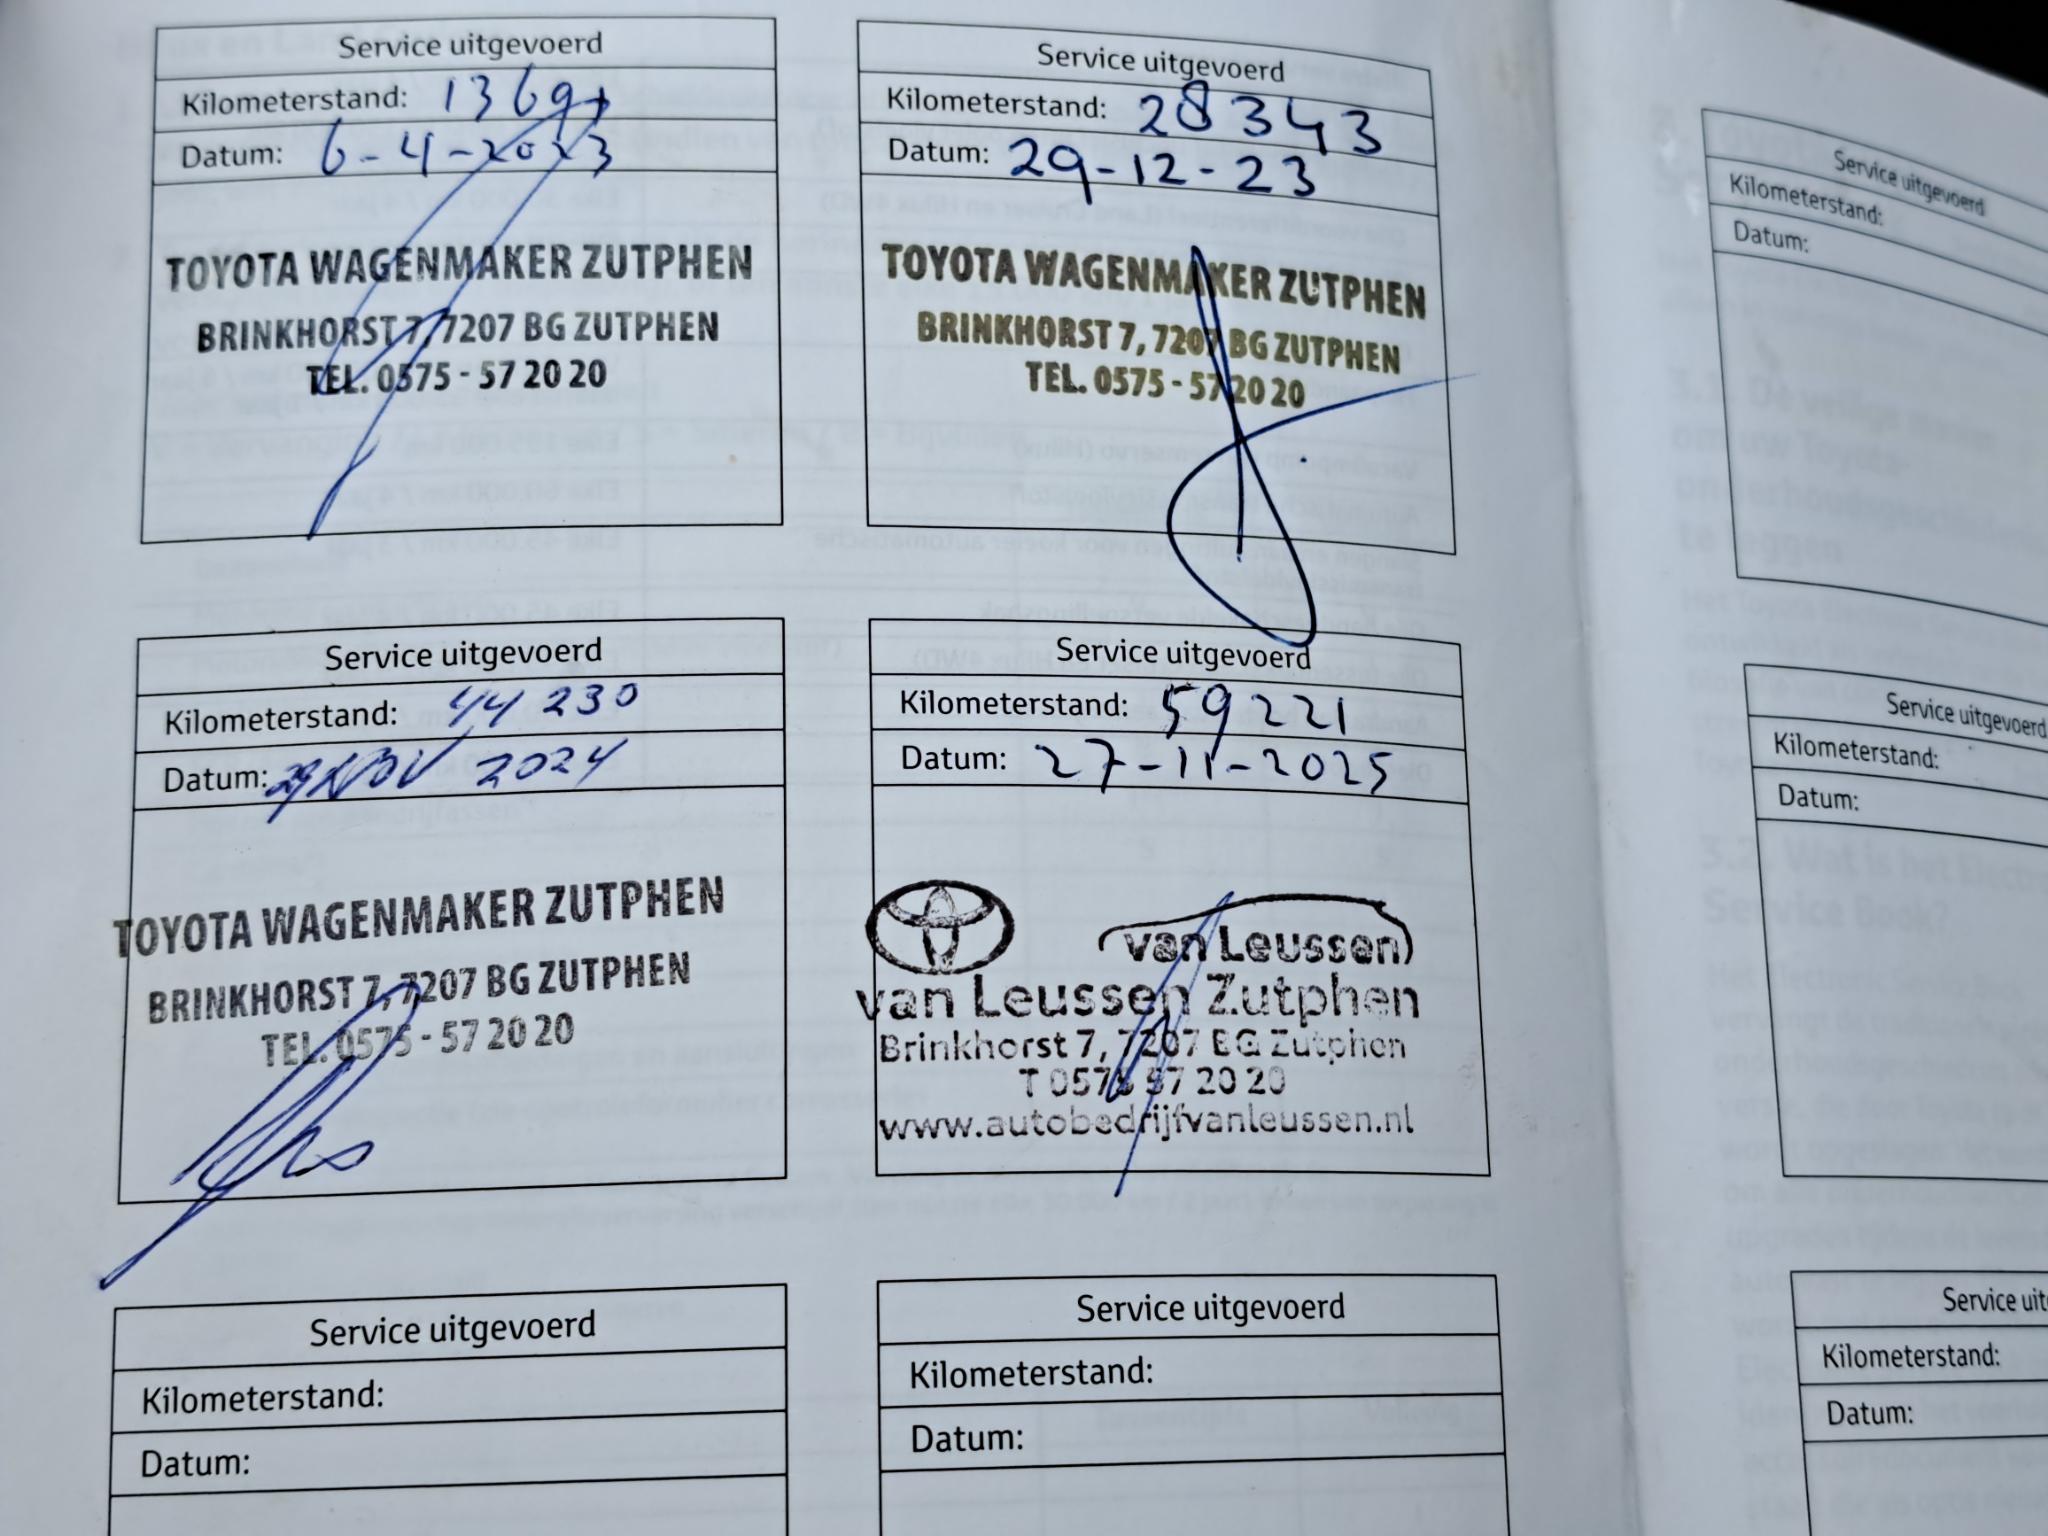 Service uitgevoerd
Kilometerstand:
Datum: 6-4-2023
TOYOTA WAGENMAKER ZUTPHEN
BRINKHORST 7, 7207 BG ZUTPHEN
TEL. 0575 - 57 20 20
Service uitgevoerd
Kilometerstand: 28343
Datum: 29-12-23
TOYOTA WAGENMAKER ZUTPHEN
BRINKHORST 7, 7207 BG ZUTPHEN
TEL. 0575 - 57 20 20
Service uitgevoerd
Kilometerstand: 44 230
Datum: 29 NOV 2024
TOYOTA WAGENMAKER ZUTPHEN
BRINKHORST 7, 7207 BG ZUTPHEN
TEL. 0575 - 57 20 20
Service uitgevoerd
Kilometerstand: 59221
Datum: 27-11-2025
van Leussen
van Leussen Zutphen
Brinkhorst 7, 7207 BG Zutphen
T 0575 57 20 20
www.autobedrijfvanleussen.nl
Service uitgevoerd
Kilometerstand:
Datum:
Service uitgevoerd
Kilometerstand:
Datum:
Service uitgevoerd
Kilometerstand:
Datum:
Service uitgevoerd
Kilometerstand:
Datum:
Service uit
Kilometerstand:
Datum: